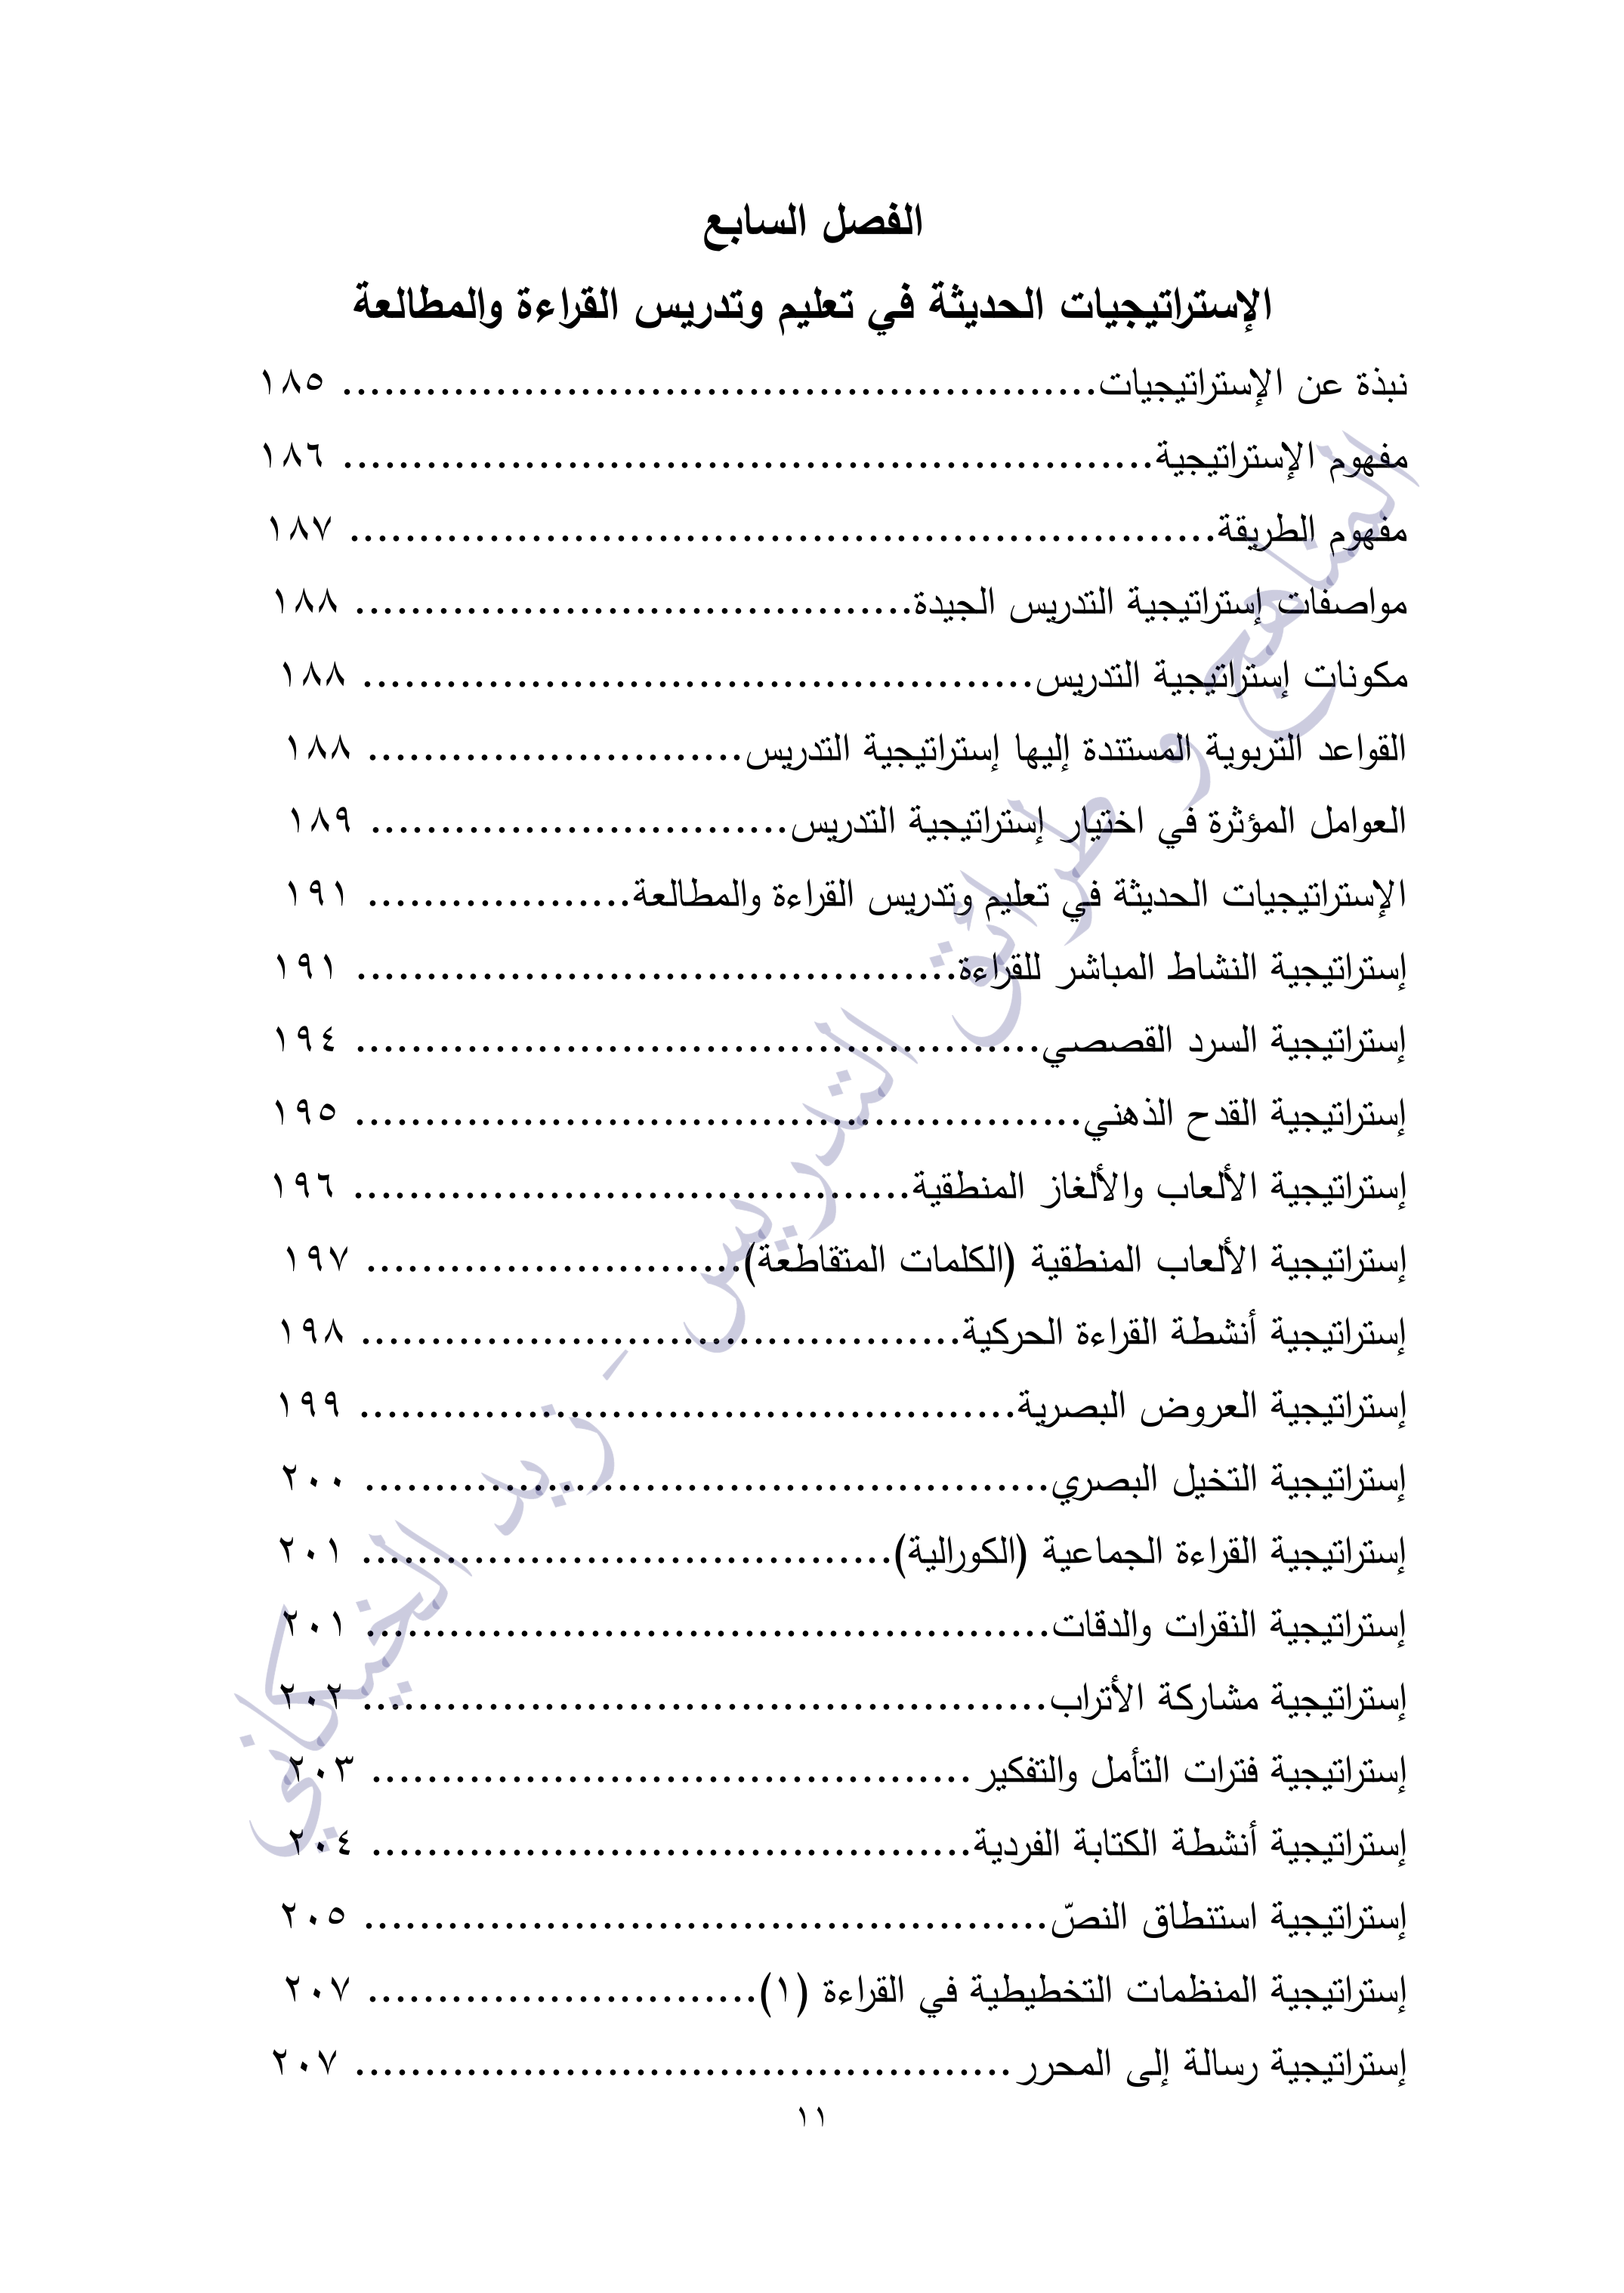 الفصل السابع
الإستراتيجيات الحديثة في تعليم وتدريس القراءة والمطالعة
نبذة عن الإستراتيجيات...................................................... ١٨٥
مفهوم الإستراتيجية.......................................................... ١٨٦
مفهوم الطريقة.............................................................. ١٨٧
مواصفات إستراتيجية التدريس الجيدة........................................ ١٨٨
مكونات إستراتيجية التدريس................................................ ١٨٨
القواعد التربوية المستندة إليها إستراتيجية التدريس........................... ١٨٨
العوامل المؤثرة في اختيار إستراتيجية التدريس.............................. ١٨٩
الإستراتيجيات الحديثة في تعليم وتدريس القراءة والمطالعة................... ١٩١
إستراتيجية النشاط المباشر للقراءة........................................... ١٩١
إستراتيجية السرد القصصي................................................. ١٩٤
إستراتيجية القدح الذهني.................................................... ١٩٥
إستراتيجية الألعاب والألغاز المنطقية........................................ ١٩٦
إستراتيجية الألعاب المنطقية (الكلمات المتقاطعة)........................... ١٩٧
إستراتيجية أنشطة القراءة الحركية........................................... ١٩٨
إستراتيجية العروض البصرية............................................... ١٩٩
إستراتيجية التخيل البصري................................................. ٢٠٠
إستراتيجية القراءة الجماعية (الكورالية)...................................... ٢٠١
إستراتيجية النقرات والدقات................................................. ٢٠١
إستراتيجية مشاركة الأتراب................................................. ٢٠٢
إستراتيجية فترات التأمل والتفكير........................................... ٢٠٣
إستراتيجية أنشطة الكتابة الفردية........................................... ٢٠٤
إستراتيجية استنطاق النصّ................................................. ٢٠٥
إستراتيجية المنظمات التخطيطية في القراءة (١)............................ ٢٠٧
إستراتيجية رسالة إلى المحرر............................................... ٢٠٧
١١
المناهج و طرائق التدريس - زيد الخيكاني